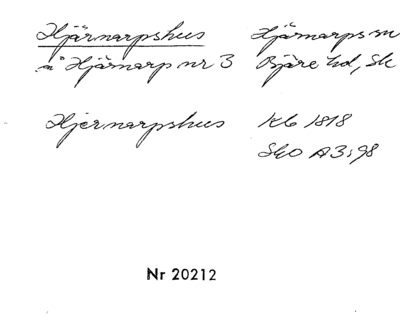 Hjärnarpshus Hjärnarps sn
å Hjärnarp nr 3 Bjäre hd, Sk
Hjernarpshus Kb 1818
SkO A3:98
Nr 20212